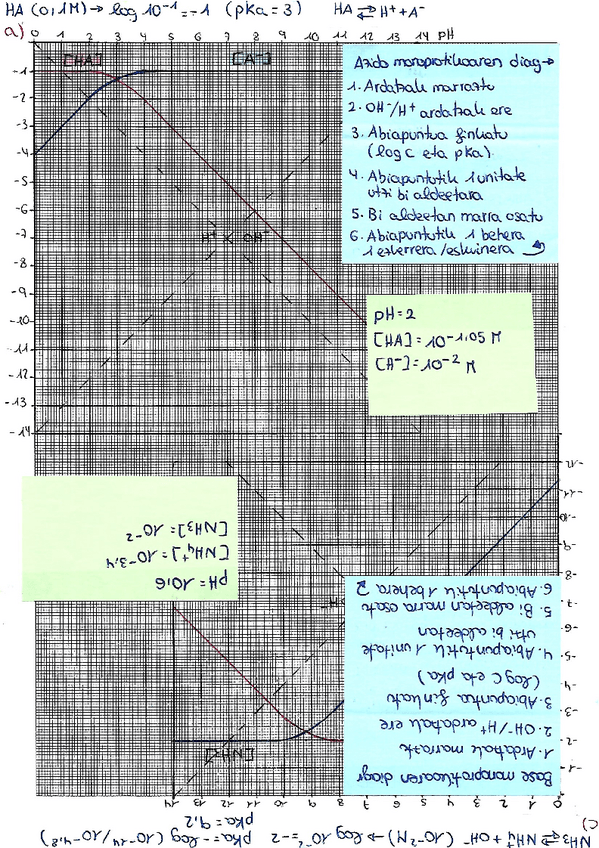 HA (0,1M) → log 10⁻¹ = -1 (pKa = 3) HA ⇄ H⁺ + A⁻
a)
0 1 2 3 4 5 6 7 8 9 10 11 12 13 14 pH
[HA] [A⁻]
-1
-2
-3
-4
-5
-6
-7
-8
-9
-10
-11
-12
-13
-14
H⁺ OH⁻
Azido monoprotikoaren diag →
1. Ardatzak marraztu
2. OH⁻/H⁺ ardatzak ere
3. Abiapuntua finkatu
(log C eta pKa)
4. Abiapuntutik 1 unitate
utzi bi aldeetara
5. Bi aldeetan marra osatu
6. Abiapuntutik 1 behera
1 ezkerrera/eskuinera
pH = 2
[HA] = 10⁻¹·⁰⁵ M
[A⁻] = 10⁻² M
c)
NH₃ ⇄ NH₄⁺ + OH⁻ (10⁻² M) → log 10⁻² = -2 pKa = -log (10⁻¹⁴/10⁻⁴·⁸)
pKa = 9,2
0 1 2 3 4 5 6 7 8 9 10 11 12 13 14
-1
-2
-3
-4
-5
-6
-7
-8
-9
-10
-11
-12
[NH₃]
Base monoprotikoaren diagr
1. Ardatzak marraztu
2. OH⁻/H⁺ ardatzak ere
3. Abiapuntua finkatu
(log C eta pKa)
4. Abiapuntutik 1 unitate
utzi bi aldeetan
5. Bi aldeetan marra osatu
6. Abiapuntutik 1 behera
pH = 10,6
[NH₄⁺] = 10⁻³·⁴
[NH₃] = 10⁻²